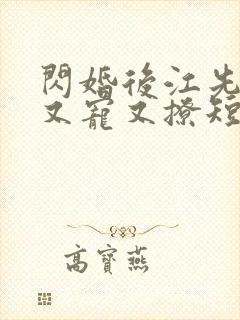 閃婚後江先
又寵又撩短
高寶燕